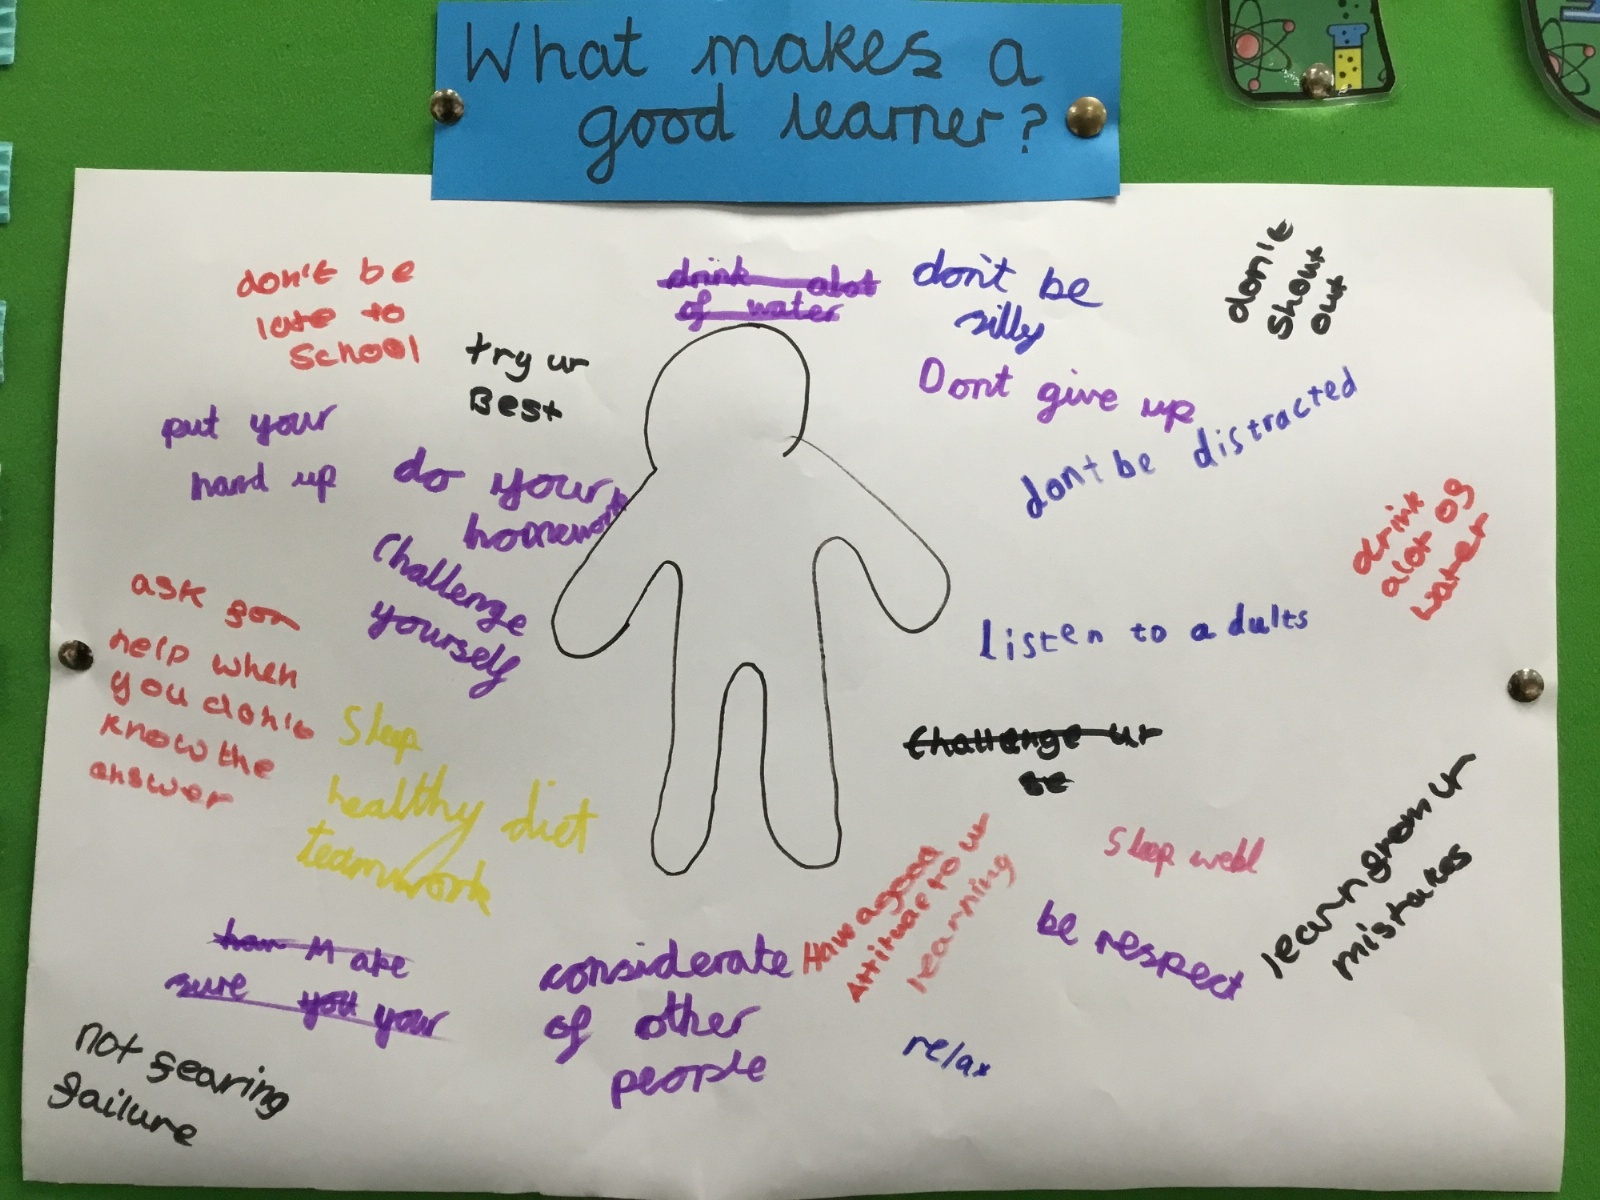 What makes a
good learner?
don't be
late to
School
try ur
Best
put your
hand up
do your
homework
Challenge
yourself
ask for
help when
you don't
know the
answer
Sleep
healthy diet
teamwork
Make
sure you your
not fearing
failure
drink alot
of water
don't be
silly
Dont give up
don't
Shout
out
dont be distracted
drink
alot of
water
listen to adults
Challenge ur
se
Have a good
Attitude to ur
learning
Sleep well
be respect
learn from ur
mistakes
considerate
of other
people
relax